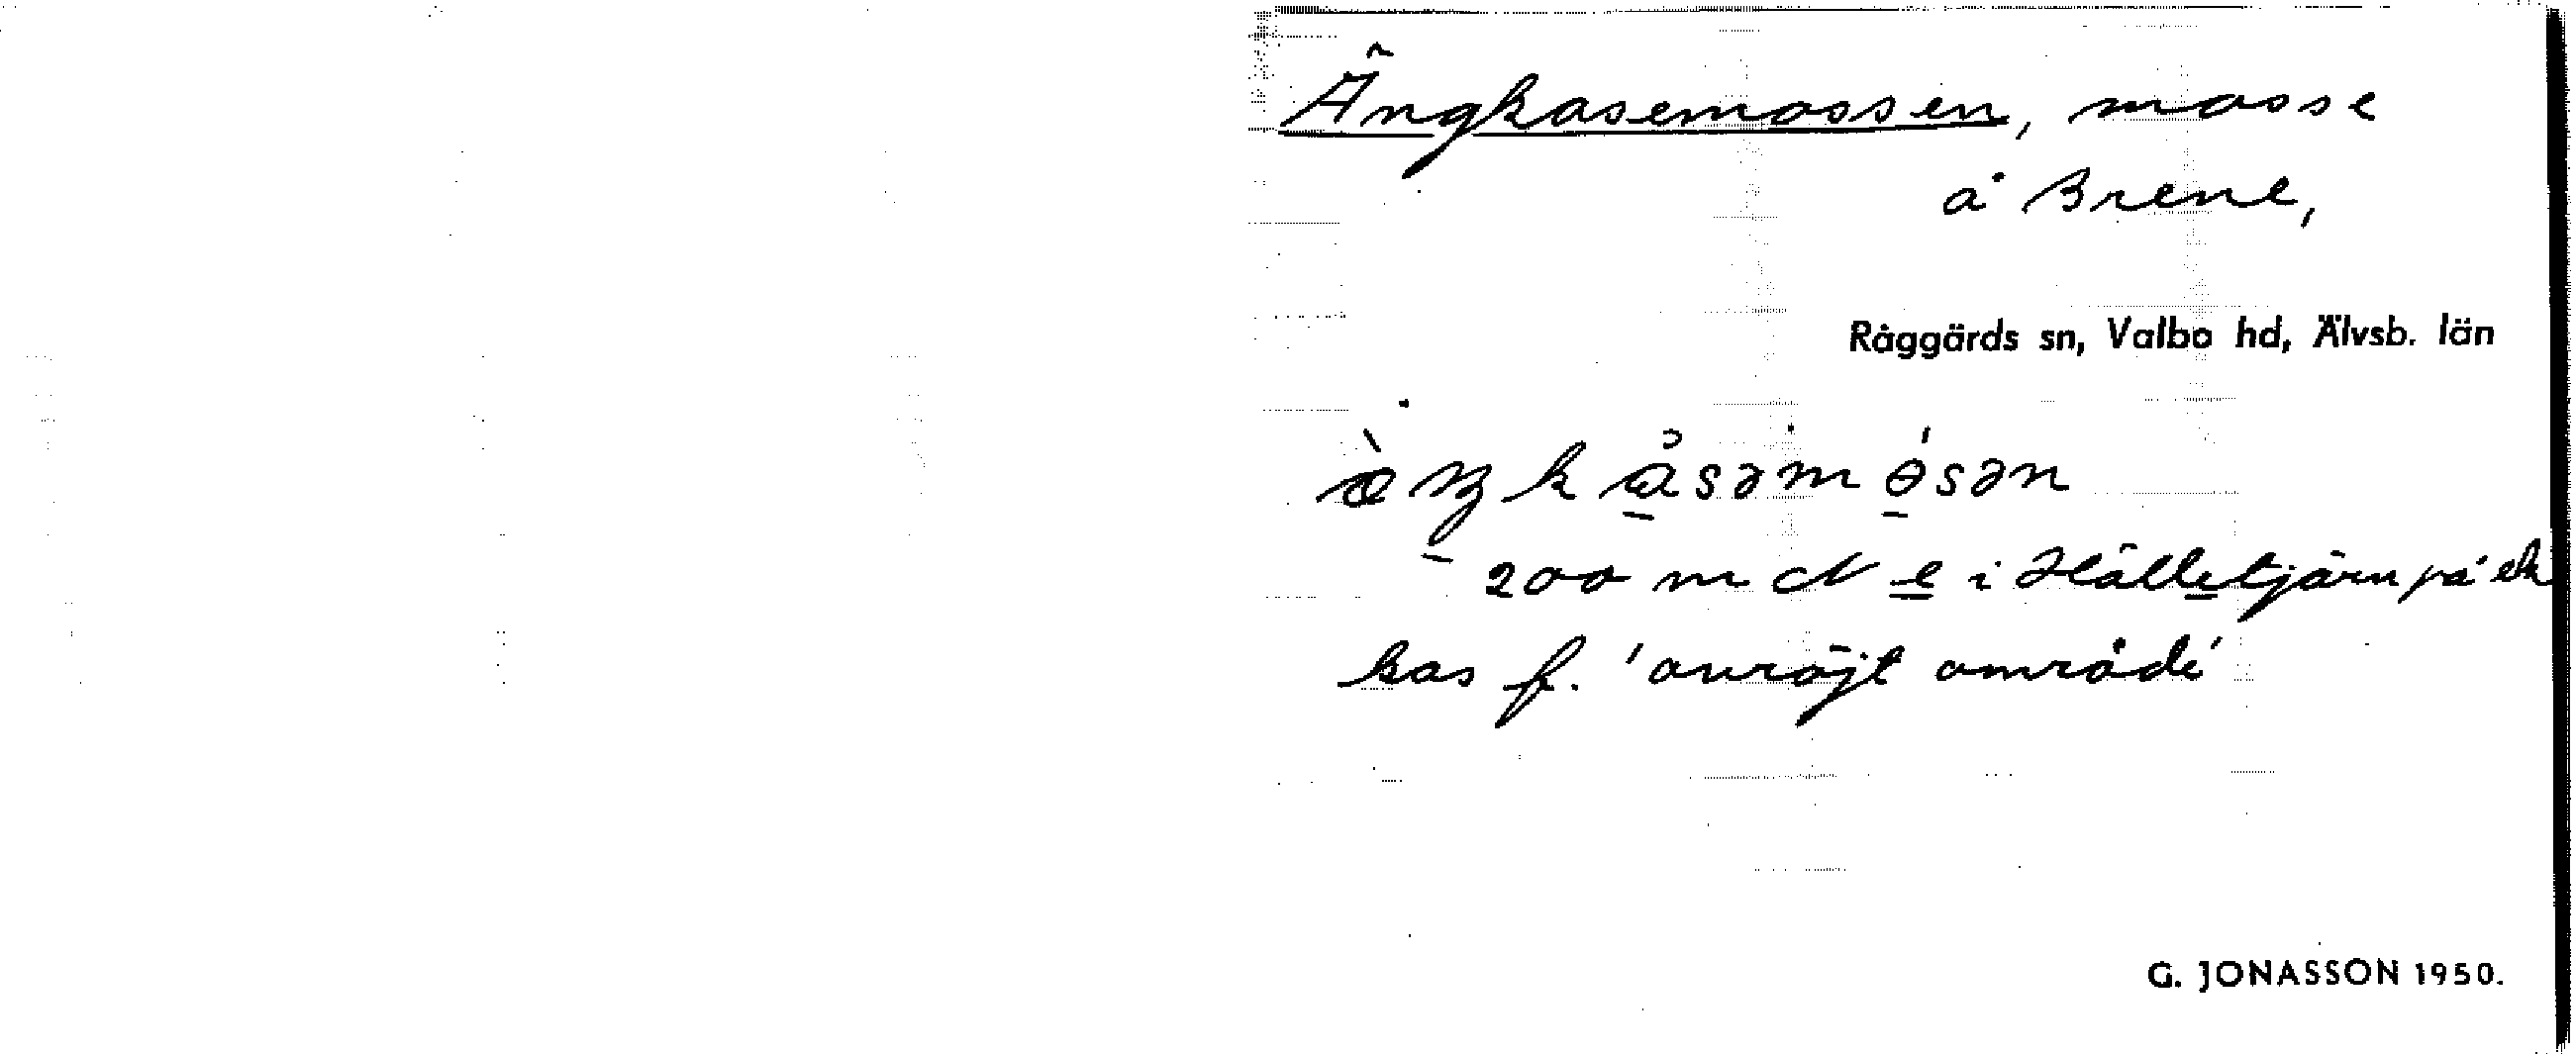 Ängkasemossen, mosse
å Brene,
Råggärds sn, Valbo hd, Älvsb. län
200 m N e i Hälletjärn på ek
kas f. 'avröjt område'
G. JONASSON 1950.